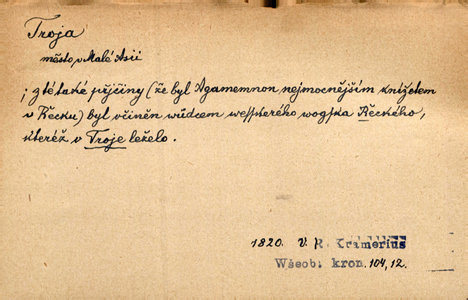 Troja
město v Malé Asii
; z té také přjčiny (že byl Agamemnon nejmocnějším knížetem
v Řecku) byl včiněn wůdcem wessskerého wogska Řeckého,
kteréž v Troje leželo.
1820. V. R. Kramerius
Wšeob: kron. 104, 12.